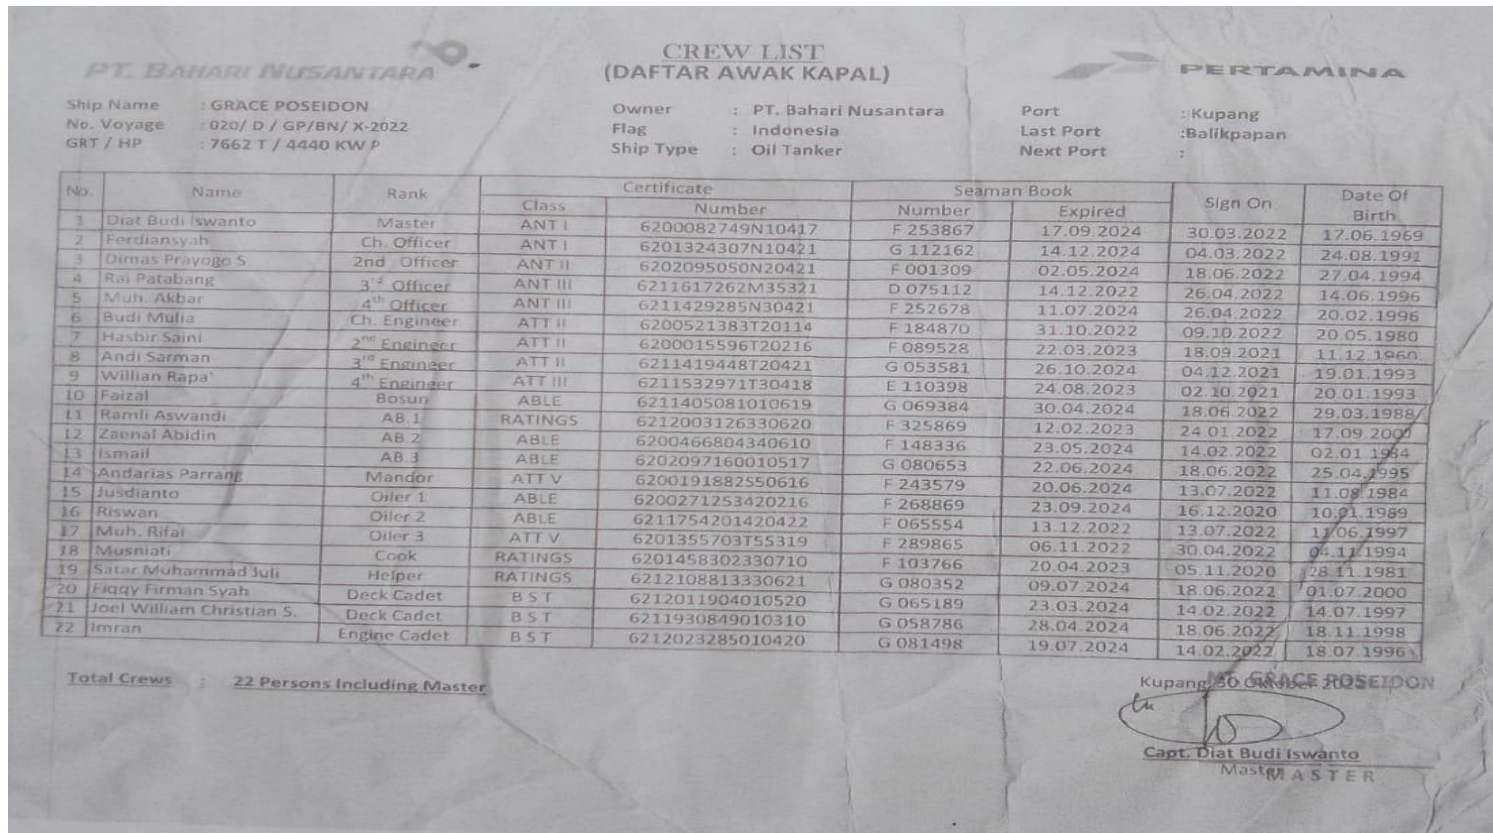 PT. BAHARI NUSANTARA
CREW LIST
(DAFTAR AWAK KAPAL)
PERTAMINA
Ship Name : GRACE POSEIDON
No. Voyage : 020/ D / GP/BN/ X-2022
GRT / HP : 7662 T / 4440 KW P
Owner : PT. Bahari Nusantara
Flag : Indonesia
Ship Type : Oil Tanker
Port : Kupang
Last Port :Balikpapan
Next Port :
No. Name Rank Certificate Seaman Book Sign On Date Of Birth
Class Number Number Expired
1 Diat Budi Iswanto Master ANT I 6200082749N10417 F 253867 17.09.2024 30.03.2022 17.06.1969
2 Ferdiansyah Ch. Officer ANT I 6201324307N10421 G 112162 14.12.2024 04.03.2022 24.08.1991
3 Dimas Prayogo S 2nd Officer ANT II 6202095050N20421 F 001309 02.05.2024 18.06.2022 27.04.1994
4 Rai Patabang 3rd Officer ANT III 6211617262M35321 D 075112 14.12.2022 26.04.2022 14.06.1996
5 Muh. Akbar 4th Officer ANT III 6211429285N30421 F 252678 11.07.2024 26.04.2022 20.02.1996
6 Budi Mulia Ch. Engineer ATT II 6200521383T20114 F 184870 31.10.2022 09.10.2022 20.05.1980
7 Hasbir Saini 2nd Engineer ATT II 6200015596T20216 F 089528 22.03.2023 18.09.2021 11.12.1960
8 Andi Sarman 3rd Engineer ATT II 6211419448T20421 G 053581 26.10.2024 04.12.2021 19.01.1993
9 Willian Rapa' 4th Engineer ATT III 6211532971T30418 E 110398 24.08.2023 02.10.2021 20.01.1993
10 Faizal Bosun ABLE 6211405081010619 G 069384 30.04.2024 18.06.2022 29.03.1988
11 Ramli Aswandi AB.1 RATINGS 6212003126330620 F 325869 12.02.2023 24.01.2022 17.09.2000
12 Zaenal Abidin AB.2 ABLE 6200466804340610 F 148336 23.05.2024 14.02.2022 02.01.1984
13 Ismail AB.3 ABLE 6202097160010517 G 080653 22.06.2024 18.06.2022 25.04.1995
14 Andarias Parrang Mandor ATT V 6200191882S50616 F 243579 20.06.2024 13.07.2022 11.08.1984
15 Jusdianto Oiler 1 ABLE 6200271253420216 F 268869 23.09.2024 16.12.2020 10.01.1989
16 Riswan Oiler 2 ABLE 6211754201420422 F 065554 13.12.2022 13.07.2022 11.06.1997
17 Muh. Rifai Oiler 3 ATT V 6201355703T55319 F 289865 06.11.2022 30.04.2022 04.11.1994
18 Musniati Cook RATINGS 6201458302330710 F 103766 20.04.2023 05.11.2020 28.11.1981
19 Satar Muhammad Juli Helper RATINGS 6212108813330621 G 080352 09.07.2024 18.06.2022 01.07.2000
20 Fiqqy Firman Syah Deck Cadet B S T 6212011904010520 G 065189 23.03.2024 14.02.2022 14.07.1997
21 Joel William Christian S. Deck Cadet B S T 6211930849010310 G 058786 28.04.2024 18.06.2022 18.11.1998
22 Imran Engine Cadet B S T 6212023285010420 G 081498 19.07.2024 14.02.2022 18.07.1996
Total Crews : 22 Persons Including Master
Kupang, 30 Oktober
MT. GRACE POSEIDON
Capt. Diat Budi Iswanto
Master
MASTER